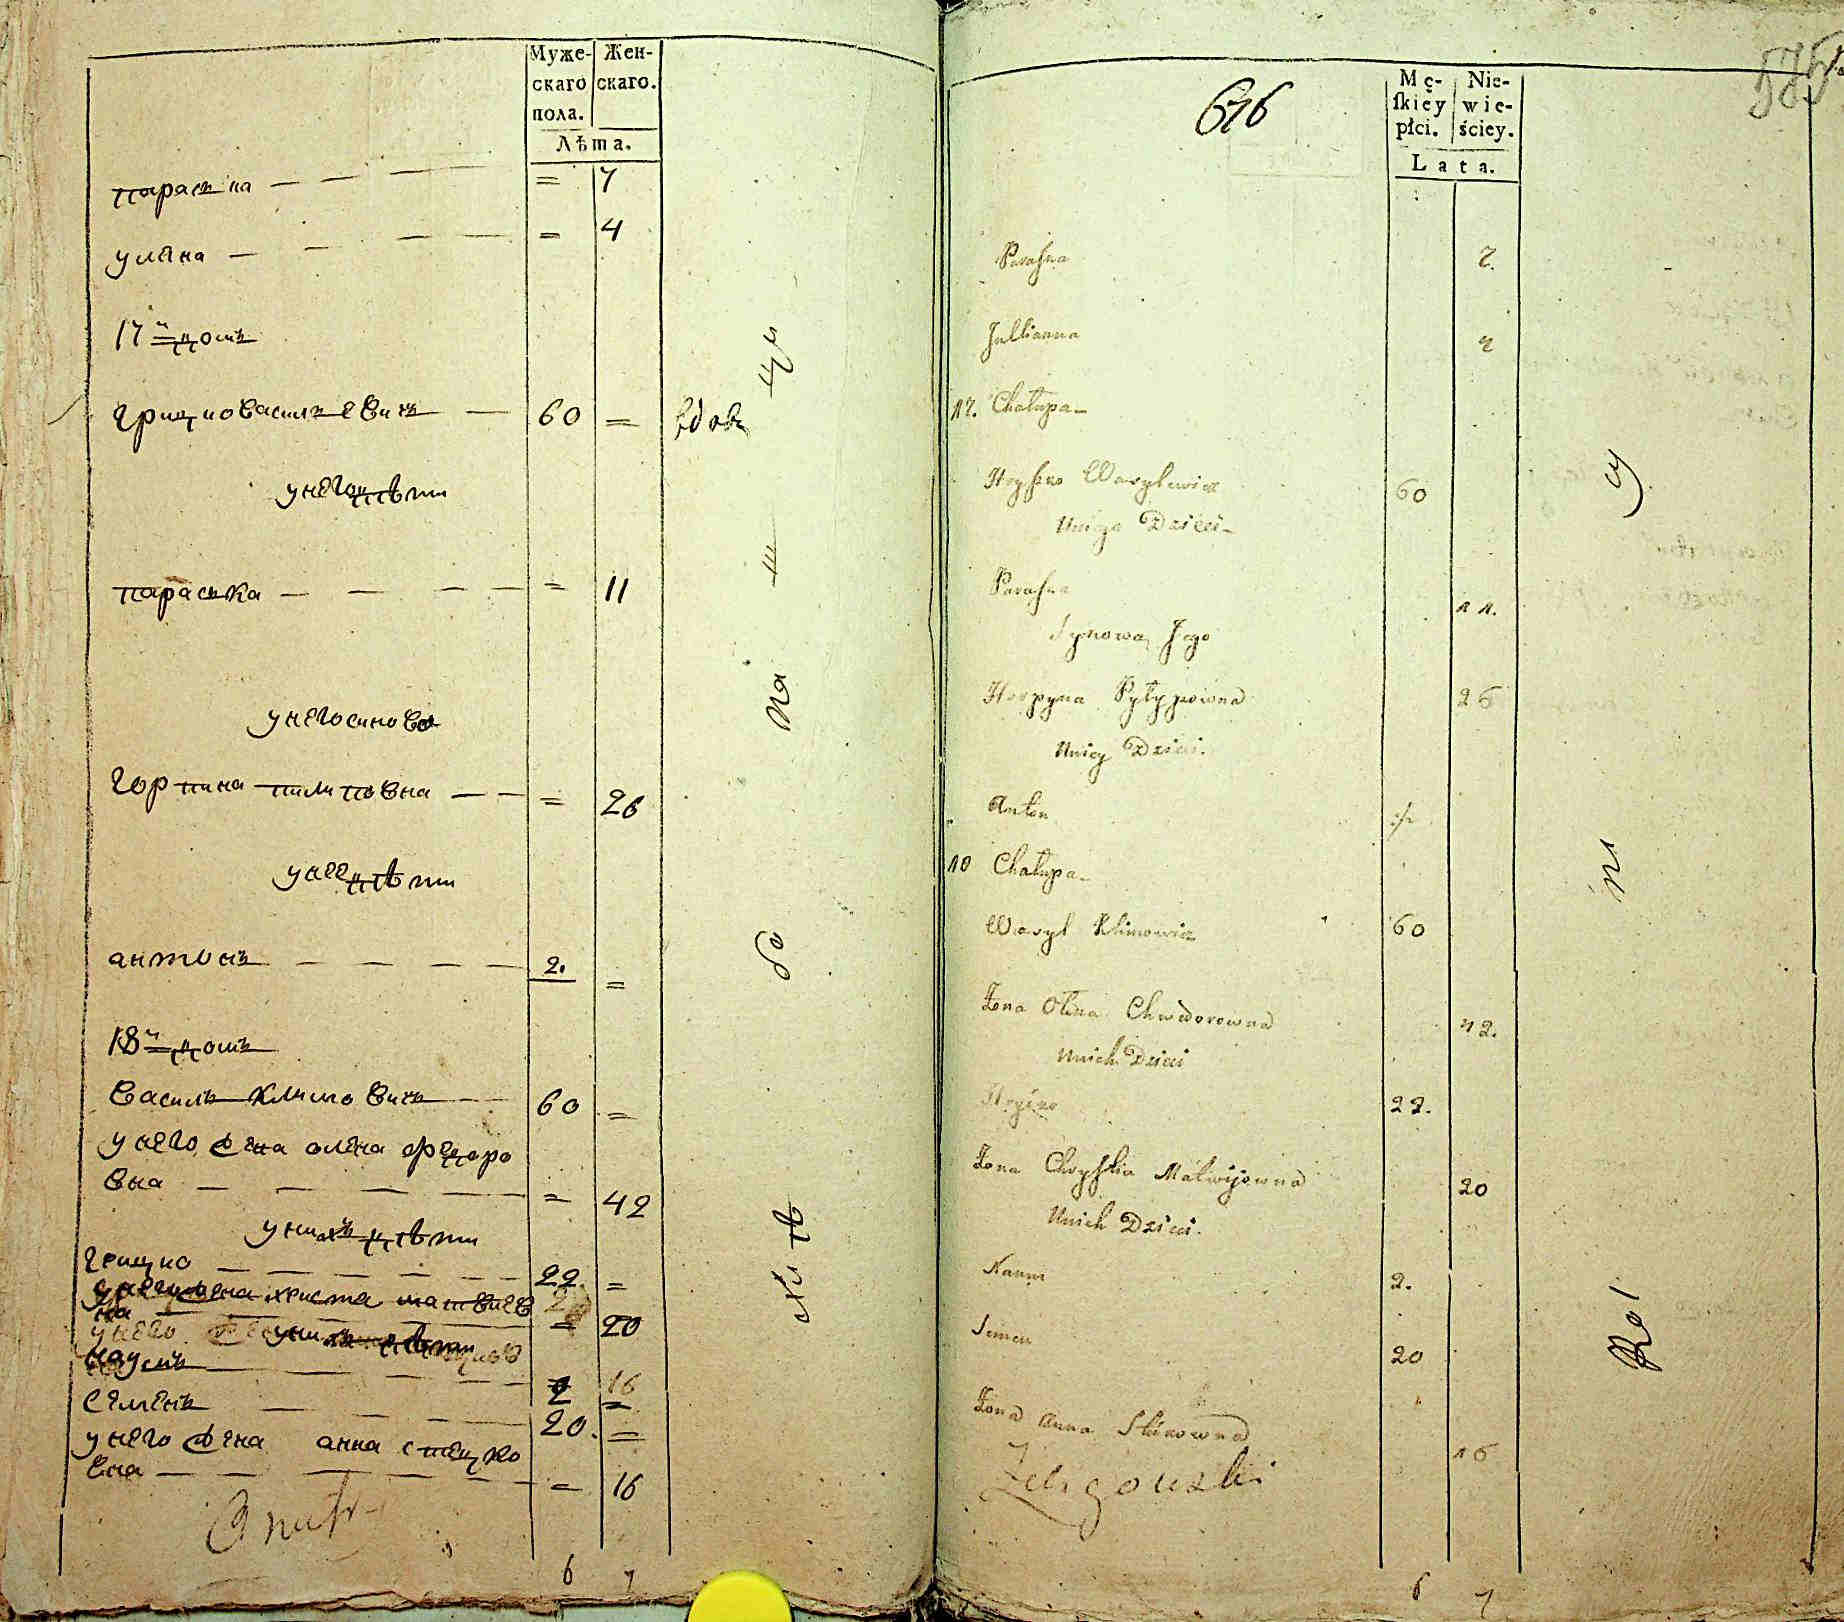 Муже-
скаго
пола.
Жен-
скаго.
Лѣта.
параска = 7
уляна = 4
17й домъ
грицко василевичъ 60 = вдовъ
у него дѣти
параска = 11
у него синова
горпина пилиповна = 26
у нее дѣти
антонъ 2. =
18й домъ
василъ климовичъ 60 =
у него жена олена федоро
вна = 42
у нихъ дѣти
грицко 22. =
у него жена христя матвиев
на = 20
у нихъ дѣти
наумъ 2 =
семенъ 20. =
у него жена анна стецко
вна = 16
6 7
676
Mę-
ſkiey
płci.
Nie-
wie-
ściey.
Lata.
Paraska 7.
Jullianna 4
17. Chałupa
Hryćko Wasylewicz 60
Uniego Dzieci
Paraska 11.
Synowa Jego
Horpyna Pyłypowna 26
Uniey Dzieci.
Anton 2
18 Chałupa
Wasyl Klimowicz 60
Żona Ołena Chwedorowna 42.
Unich Dzieci
Hryćko 22.
Żona Chrystia Matwijowna 20
Unich Dzieci.
Naum 2.
Semen 20
Żona Anna Stećkowna 16
6 7